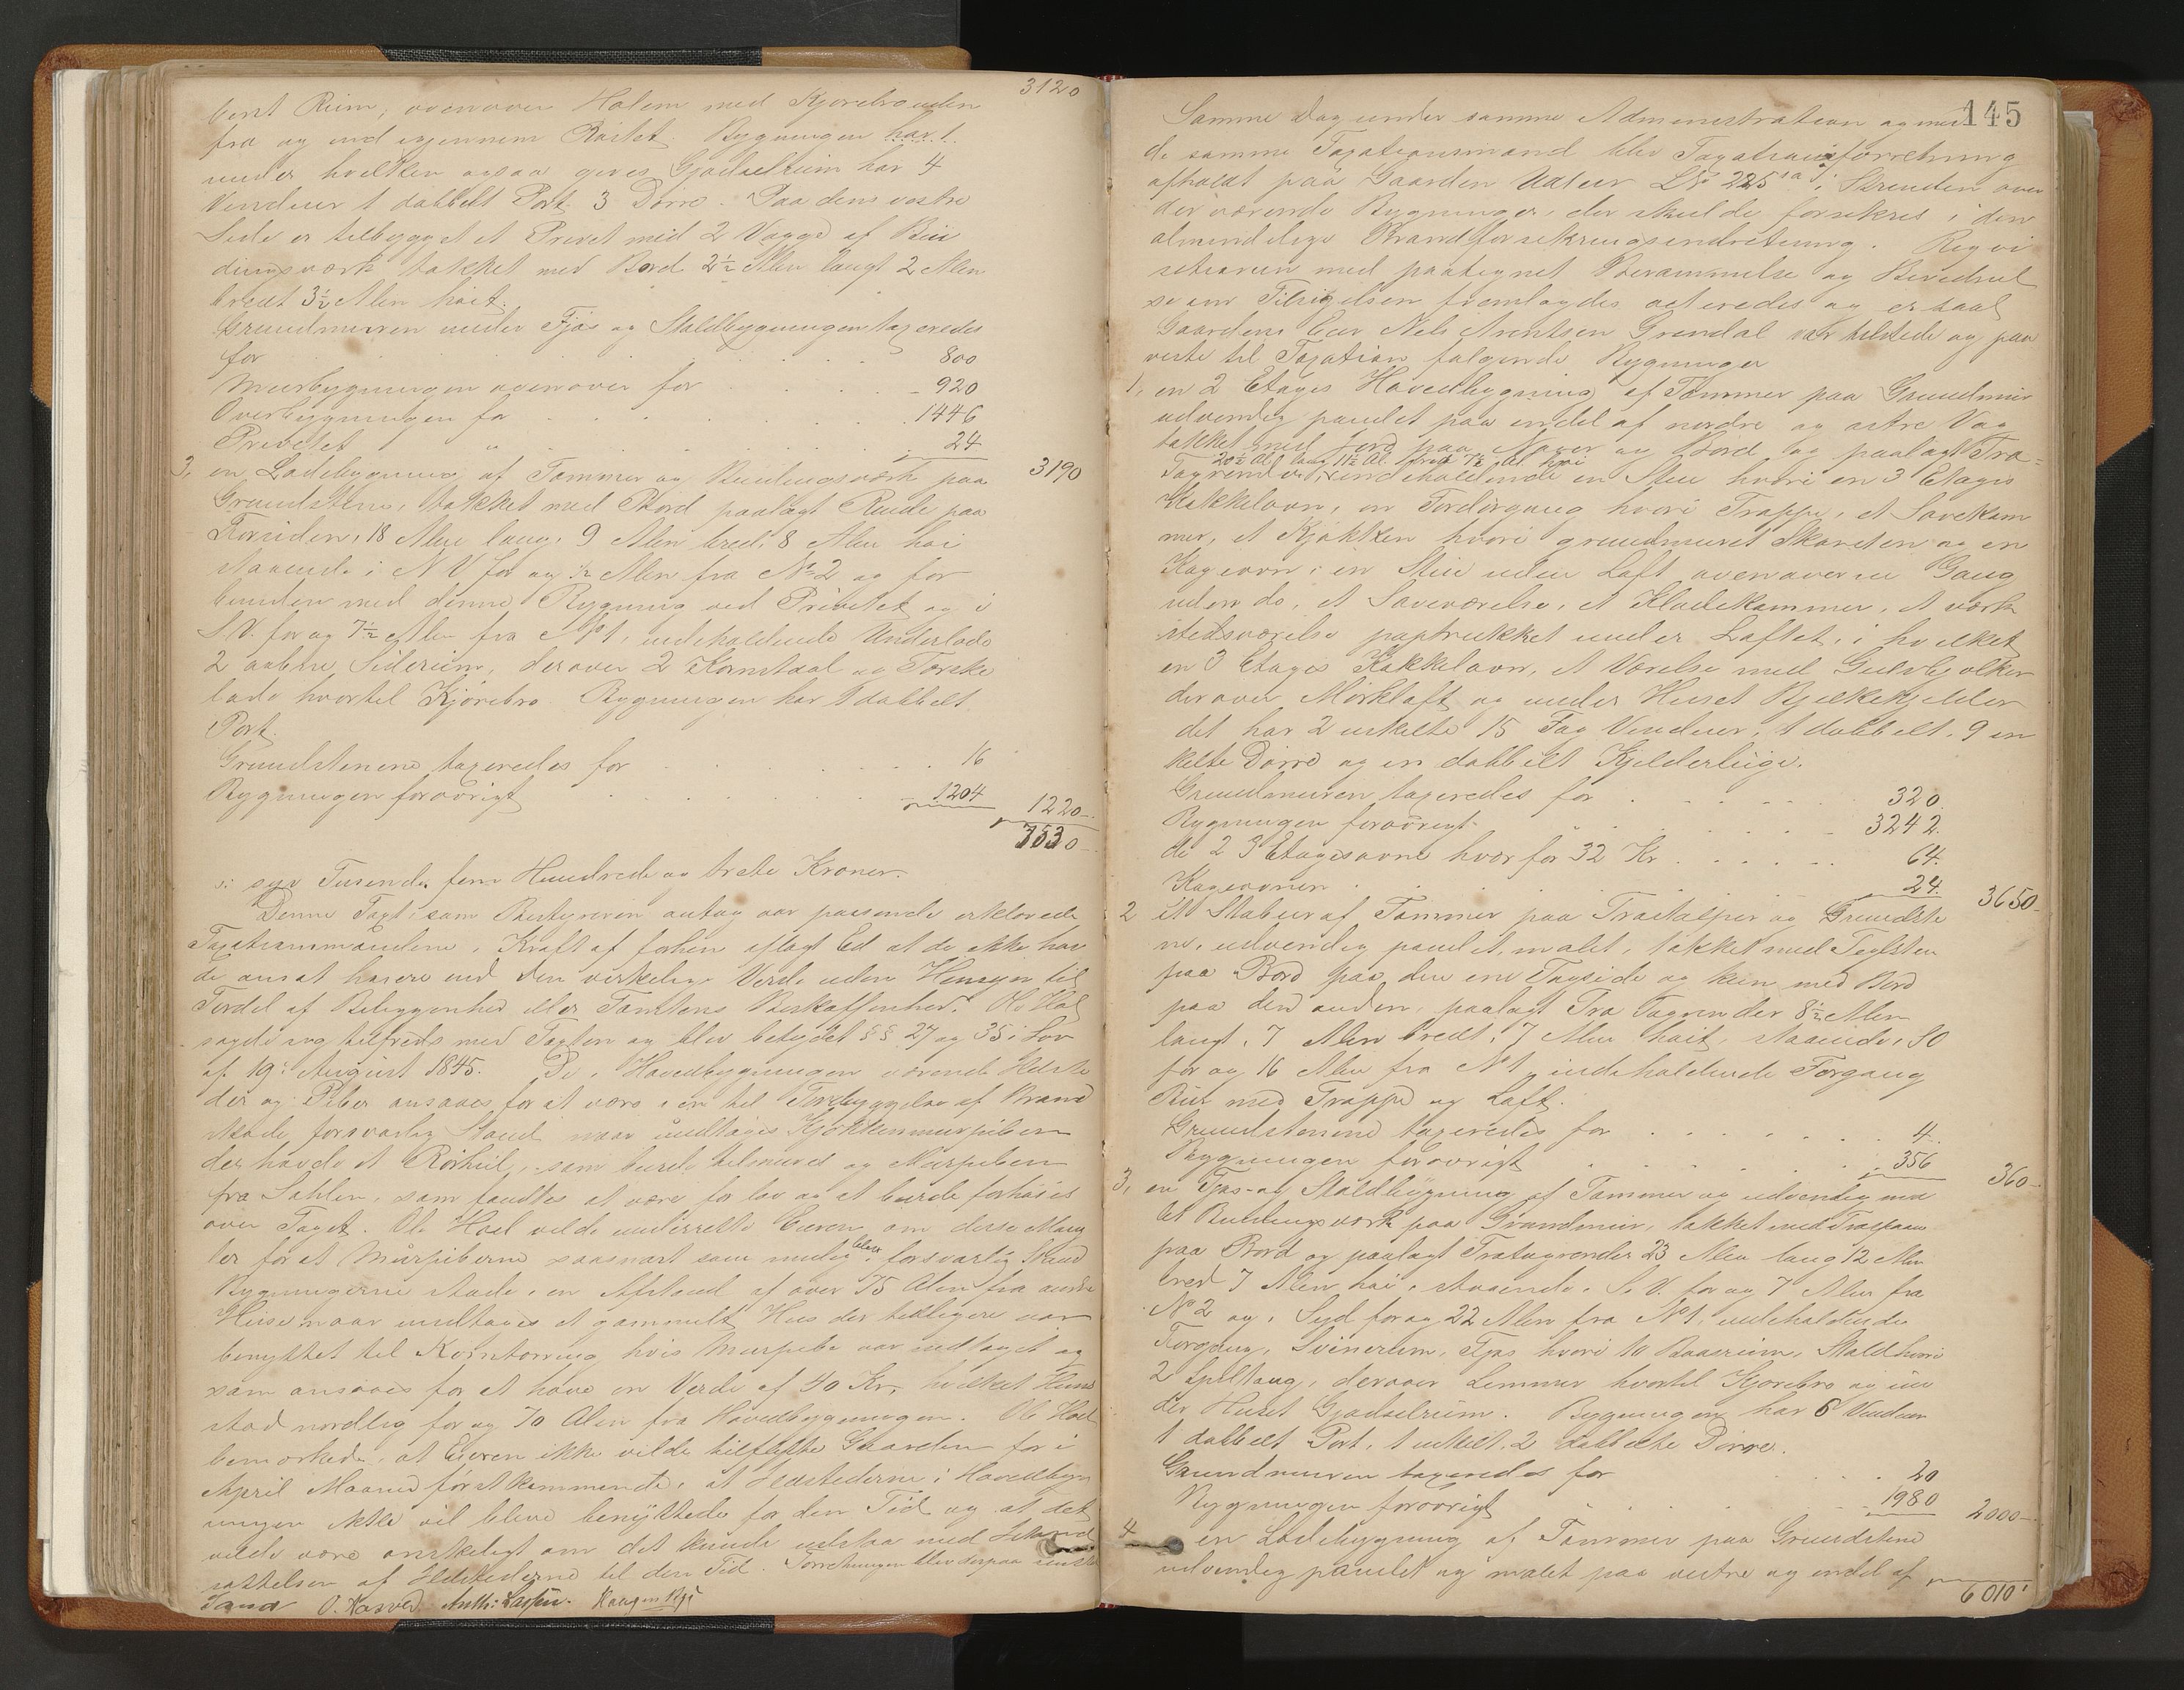 3120
bent Rum, ovenover Halem med Kjørebro uden
fra og ind igjennem Røstet. Bygningen har 1.
under hvilken ogsaa gives Gjødselrum har 4
Vinduer 1 dobbelt Port 3 Dørre. Paa dens vestre
Side er tilbygget et Privet med 2 Vægge af Bin
dingsværk takket med Bord 2½ Alen langt 2 Alen
bredt 3½ Alen høit.
Grundmuren under Fjøs og Staldbygningen taxeredes
for 800
Muurbygningen ovenover for 920
Overbygningen for 1446
Privetet " 24
3190
3, en Ladebygning af Tømmer og Bindingsværk paa
Grundstene, takket med Bord paalagt Rende paa
Forsiden, 18 Alen lang, 9 Alen bred, 8 Alen høi
staaende i N V for og ½ Alen fra No 2 og for
bunden med denne Bygning ved Privetet og i
S.V. for og 7½ Alen fra No 1, indeholdende Underlade
2 aabne Siderum, derover 2 Kornstaal og Tærske
lade hvortil Kjørebro. Bygningen har 1 dobbelt
Port.
Grundstenene taxeredes for 16
Bygningen forøvrigt 1204
1220
7530
o: syv Tusende fem Hundrede og trete Kroner.
Denne Taxt, som Bestyreren antog var passende erklærede
Taxationsmændene, i Kraft af forhen aflagt Ed at de ikke hav
de ansat høiere end den virkelige Verdi uden Hensyn til
Fordel af Beliggenhed eller Tomtens Beskaffenhed. Ole Hoel
sagde sig tilfreds med Taxten og blev betydet §§ 27 og 35 i Lov
af 19de August 1845. De i Hovedbygningen værende Ildste
der og Piber ansaaes for at være i en til Forebyggelse af Brand
skade forsvarlig Stand naar undtages Kjøkkenmuurpiben
der havde et Rørhul, som burde tilmures og Murpiben
fra Sahlen, som fandtes at være for lav og at burde forhøies
over Taget. Ole Hoel vilde underrette Eieren om disse Mang
ler for at Murpiberne saasnart som mulig blev i forsvarlig Stand
Bygningerne stode i en Afstand af over 75 Alen fra andre
Huse naar undtages et gammelt Hus der tidligere var
benyttet til Korntørring hvis Murpibe var nedtaget og
som ansaaes for at have en Verdi af 40 Kr, hvilket Huus
stod nordlig for og 70 Alen fra Hovedbygningen. Ole Hoel
bemærkede, at Eieren ikke vilde tilflytte Gaarden før i
April Maaned førstkommende, at Ildstederne i Hovedbygn
ingen ikke vil blive benyttede før den Tid og at det
vilde være ønskeligt om det kunde udstaa med Istand
sættelsen af Ildstederne til den Tid. Forretningen blev derpaa sluttet
O. Hasved Anth: Larsen. Haagen
145
Samme Dag under samme Administration og med
de samme Taxationsmænd blev Taxationsforretning
afholdt paa Gaarden Udtur LNo 225 i Strinden over
derværende Bygninger, der skulde forsikres i den
almindelige Brandforsikringsindretning. Reqvi
sitionen med paategnet Berammelse og Bevidnel
se om Tilsigelsen fremlagdes acteredes og
Gaardens Eier Nels Arentsen Grendal var tilstede og paa
viste til Taxation følgende Bygninger
1, en 2 Etages Hovedbygning af Tømmer paa Grundmur
udvendig panelet paa endel af nordre og østre Væg
tækket med Jord paa Næver og Bord og paalagt Træ=
20½ Al. lang 11½ Al. bred 7½ Al. høi
Tagrender, indeholdende en Stue hvori en 3 Etages
Kakkelovn, en Fordørgang hvori Trappe, et Sovekam
mer, et Kjøkken hvori grundmuret Skorsten og en
Kageovn, en Stue uden Loft ovenover en Gang
uden do, et Soveværelse, et Klædekammer, et værk
stedsværelse paptrukket under Loftet, i hvilket
en 3 Etages Kakkelovn, et Værelse med Gulvbjelker
derover Mørkloft og under Huset Bjelkekjelder
det har 2 enkelte 15 Fag Vinduer, 1 dobbelt, 9 en
kelte Dørre og en dobbelt Kjelderluge.
Grundmuren taxeredes for 320
Bygningen forøvrigt 3242
de 2 3 Etagesovne hver for 32 Kr 64
Kageovnen 24
3650
2 et Stabur af Tømmer paa Træstolper og Grundste
ne, udvendig panelet, malet, takket med Teglsten
paa Bord paa den ene Tagside og kun med Bord
paa den anden, paalagt Træ Tagrender 8½ Alen
langt, 7 Alen bredt, 7 Alen høit, staaende i SO
for og 16 Alen fra No 1, indeholdende Forgang
Bur med Trappe og Loft.
Grundstenene taxeredes for 4
Bygningen forøvrigt 356
360
3, en Fjøs- og Staldbygning af Tømmer og udvendig
let Bindingsværk paa Grundmur, takket med Træspaan
paa Bord og paalagt Trætagrender 23 Alen lang 12 Alen
bred 7 Alen høi, staaende i S.V. for og 7 Alen fra
No 2 og i Syd for og 22 Alen fra No 1, indeholdende
Forgang, Svinerum, Fjøs hvori 10 Baasrum, Stald hvori
2 Spiltaug, derover Lemmer hvortil Kjørebro og un
der Huset Gjødselrum. Bygningen har 6 Vinduer
1 dobbelt Port, 1 enkelt, 2 dobbelte Dørre.
Grundmuren taxeredes for 20
Bygningen forøvrigt 1980
2000
4 en Ladebygning af Tømmer paa Grundstene
udvendig panelet og malet paa vestre og endel af
6010